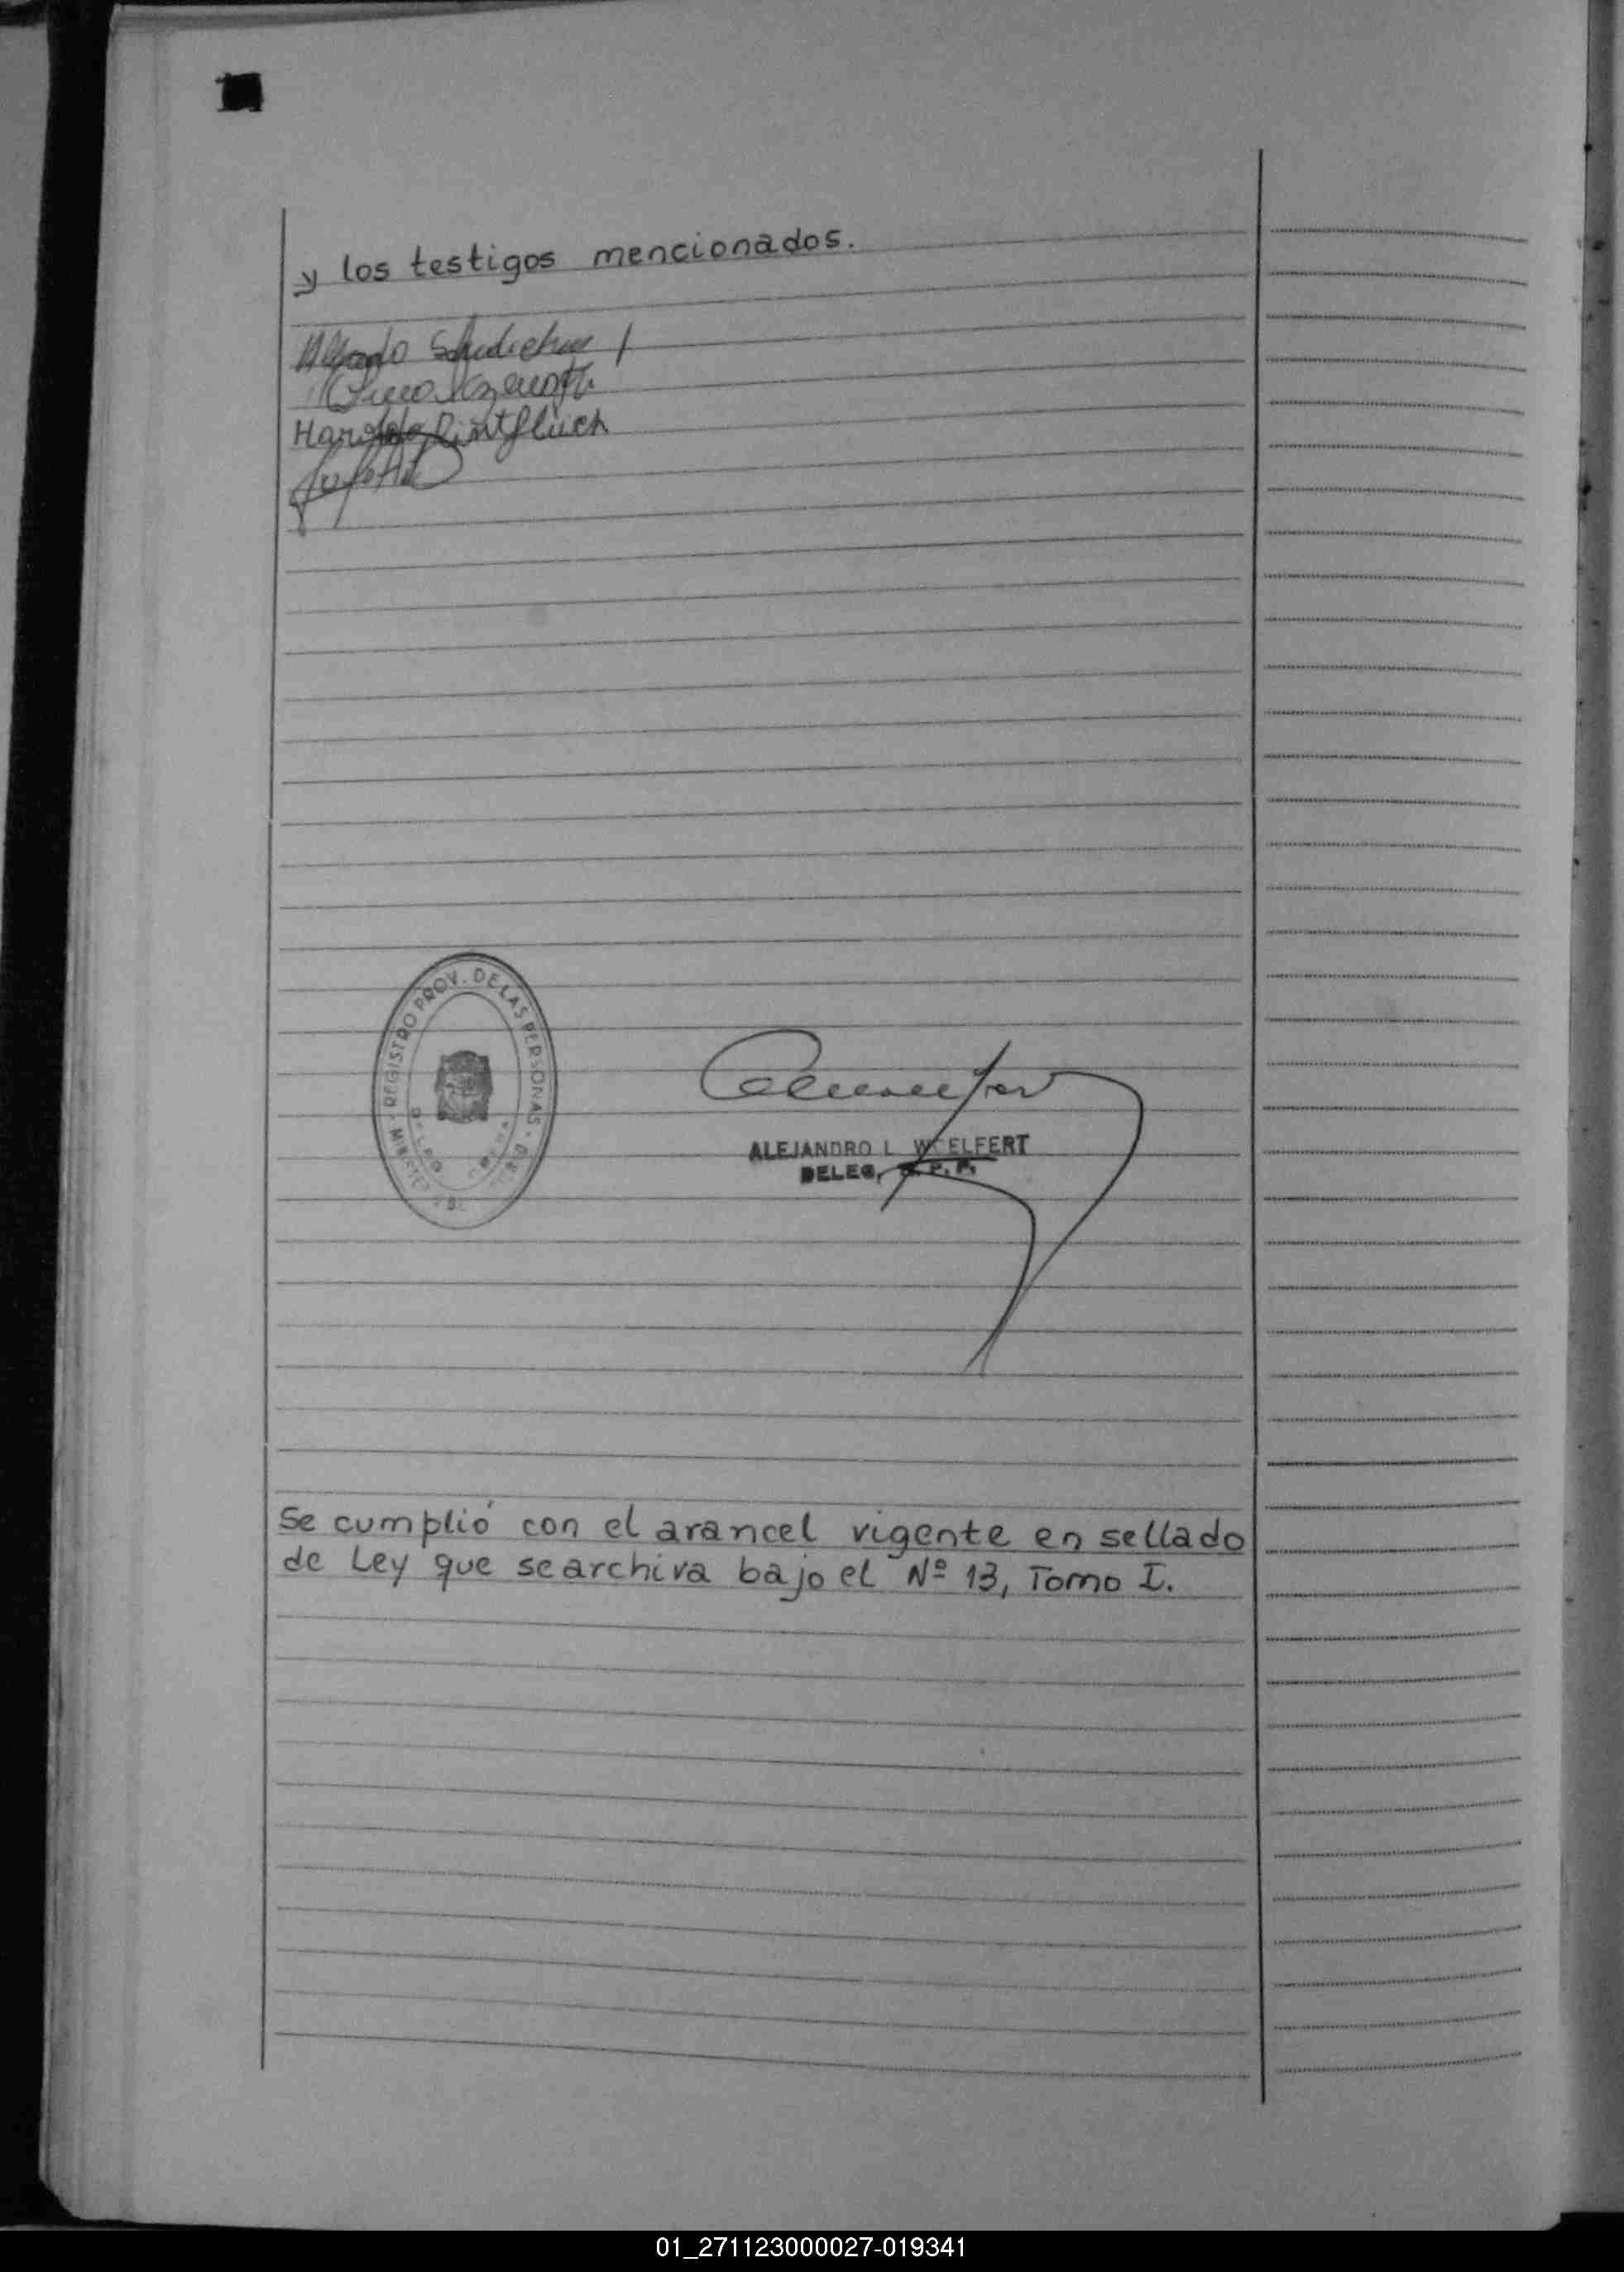 y los testigos mencionados.
Haroldo Rintflüch
REGISTRO PROV. DE LAS PERSONAS
ALEJANDRO L. WOELFERT
DELEG. R. P. P.
Se cumplió con el arancel vigente en sellado
de Ley que se archiva bajo el Nº 13, Tomo I.
01_271123000027-019341